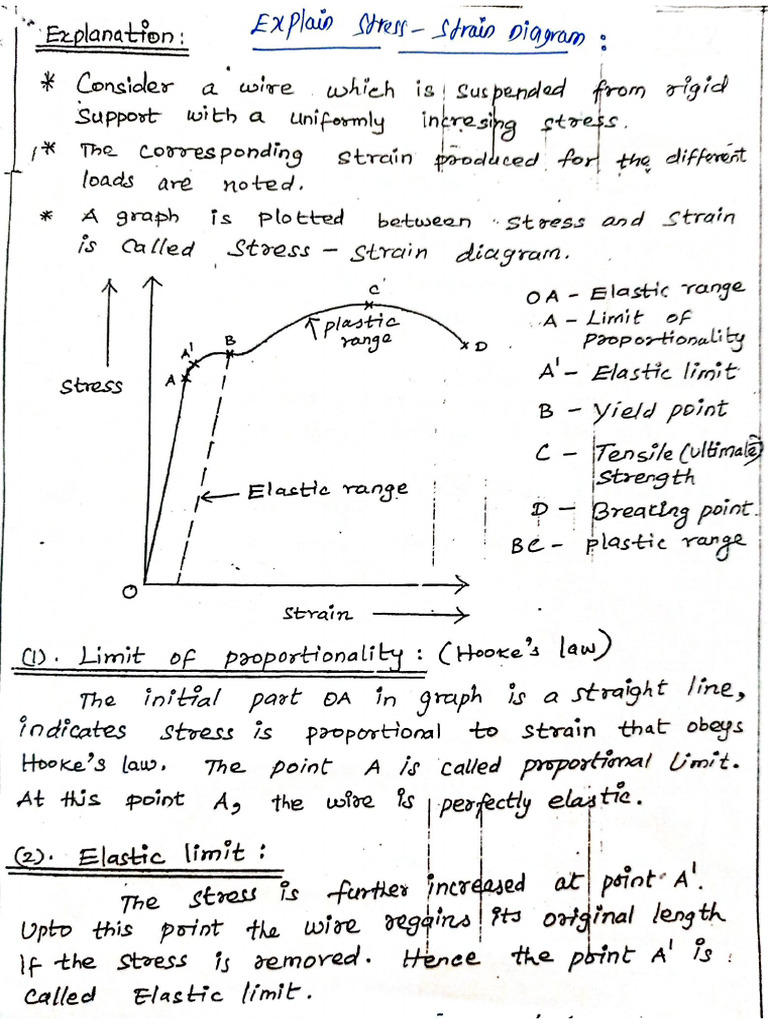 Explain Stress - Strain Diagram :
Explanation:
* Consider a wire which is suspended from rigid
support with a uniformly incresing stress.
* The corresponding strain produced for the different
loads are noted.
* A graph is plotted between stress and strain
is called stress - strain diagram.
Stress
O
A
A'
B
C
D
plastic
range
Elastic range
Strain
OA - Elastic range
A - Limit of
proportionality
A' - Elastic limit
B - Yield point
C - Tensile (ultimate)
strength
D - Breaking point.
BC - plastic range
(1). Limit of proportionality : (Hooke's law)
The initial part OA in graph is a straight line,
indicates stress is proportional to strain that obeys
Hooke's law. The point A is called proportional limit.
At this point A, the wire is perfectly elastic.
(2). Elastic limit :
The stress is further increased at point A'.
Upto this point the wire regains its original length
If the stress is removed. Hence the point A' is
called Elastic limit.